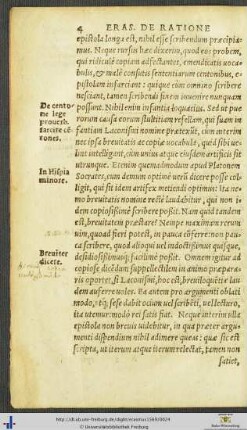 4 ERAS. DE RATIONE
epistola longa est, nihil esse scribendum præcipia-
mus. Neque rursus hæc dixerim, quod eos probem,
qui ridiculè copiam adfectantes, emendicatis uoca-
bulis, & malè consutis sententiarum centonibus, e-
pistolam infarciunt: quique cum omnino scribere
nesciant, tamen scribendi finem inuenire nunquam
possunt. Nihil enim infantia loquacius. Sed ut puer-
rorum causa eorum stultitiam refellam, qui suam in-
fantiam Laconismi nomine prætexunt, cum interim
nec ipsa breuitatis ac copiæ uocabula, quid sibi ue-
lint intelligant, cum unius atque eiusdem artificis sit
utrunque. Etenim quemadmodum apud Platonem
Socrates, eum demum optimè uerū dicere posse col-
ligit, qui sit idem artifex metiendi optimus: ita ne-
mo breuitatis nomine rectè laudabitur, qui non i-
dem copiosissimè scribere possit. Nam quid tandem
est, breuitatem præstare? Nempe maximam rerum
uim, quoad fieri potest, in pauca cōferre: non pau-
ca scribere, quod alioqui uel indoctissimus quisque,
desidiosissimusq; facilimè possit. Omnem igitur ad
copiosè dicēdam supellectilem in animo præpara-
ris oportet, si Laconismi, hoc est, breuiloquētiæ lau-
dem auferre uoles. Ea autem pro argumenti oblati
modo,
De cento-
ne lege
prouerb.
farcire cē-
tones.
In Hippia
minore.
Breuiter
dicere.
epistola non breuis uidebitur, in qua præter argu-
menti dispendium nihil adimere queas: quæ sic est
scripta, ut iterum atque iterum relectæ, tamen non
satiet,
http://dl.ub.uni-freiburg.de/diglit/erasmus1549/0024
© Universitätsbibliothek Freiburg